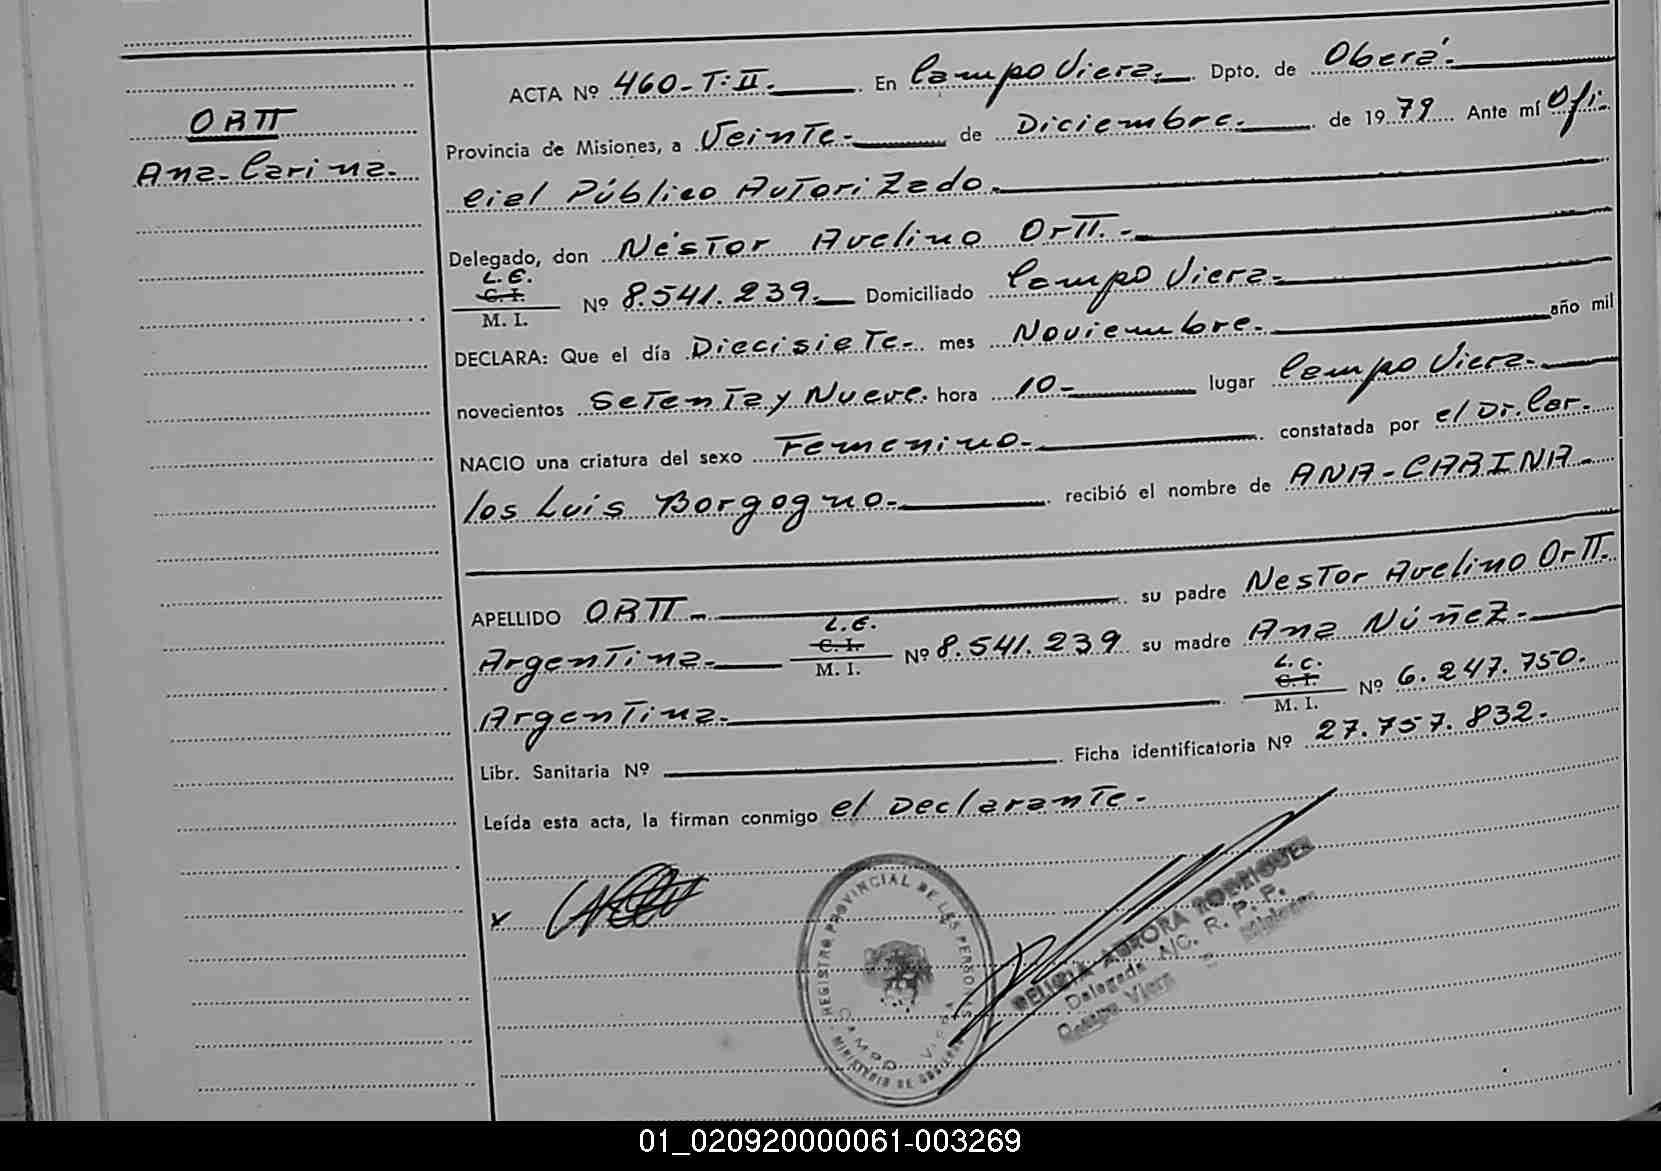 ORTT
Ana-Carina.
ACTA Nº 460-T:II. En Campo Viera. Dpto. de Oberá.
Provincia de Misiones, a Veinte. de Diciembre. de 1979. Ante mí Ofi-
cial Público Autorizado.
Delegado, don Néstor Avelino Ortt.-
L.E.
C. I.
M. I.
Nº 8.541.239. Domiciliado Campo Viera.
DECLARA: Que el día Diecisiete. mes Noviembre. año mil
novecientos Setenta y Nueve. hora 10.- lugar Campo Viera.
NACIO una criatura del sexo Femenino. constatada por el Dr. Car-
los Luis Borgogno. recibió el nombre de ANA-CARINA-
APELLIDO ORTT- su padre Nestor Avelino Ortt.
Argentina. L.E. C. I. M. I. Nº 8.541.239 su madre Ana Núñez.
Argentina. L.C. C. I. M. I. Nº 6.247.750.
Libr. Sanitaria Nº Ficha identificatoria Nº 27.757.832.
Leída esta acta, la firman conmigo el Declarante.
x
REGISTRO PROVINCIAL DE LAS PERSONAS
CAMPO VIERA
MINISTERIO DE GOBIERNO
DELICIA AURORA RODRIGUEZ
Delegada A/C. R. P. P.
Campo Viera Misiones
01_020920000061-003269